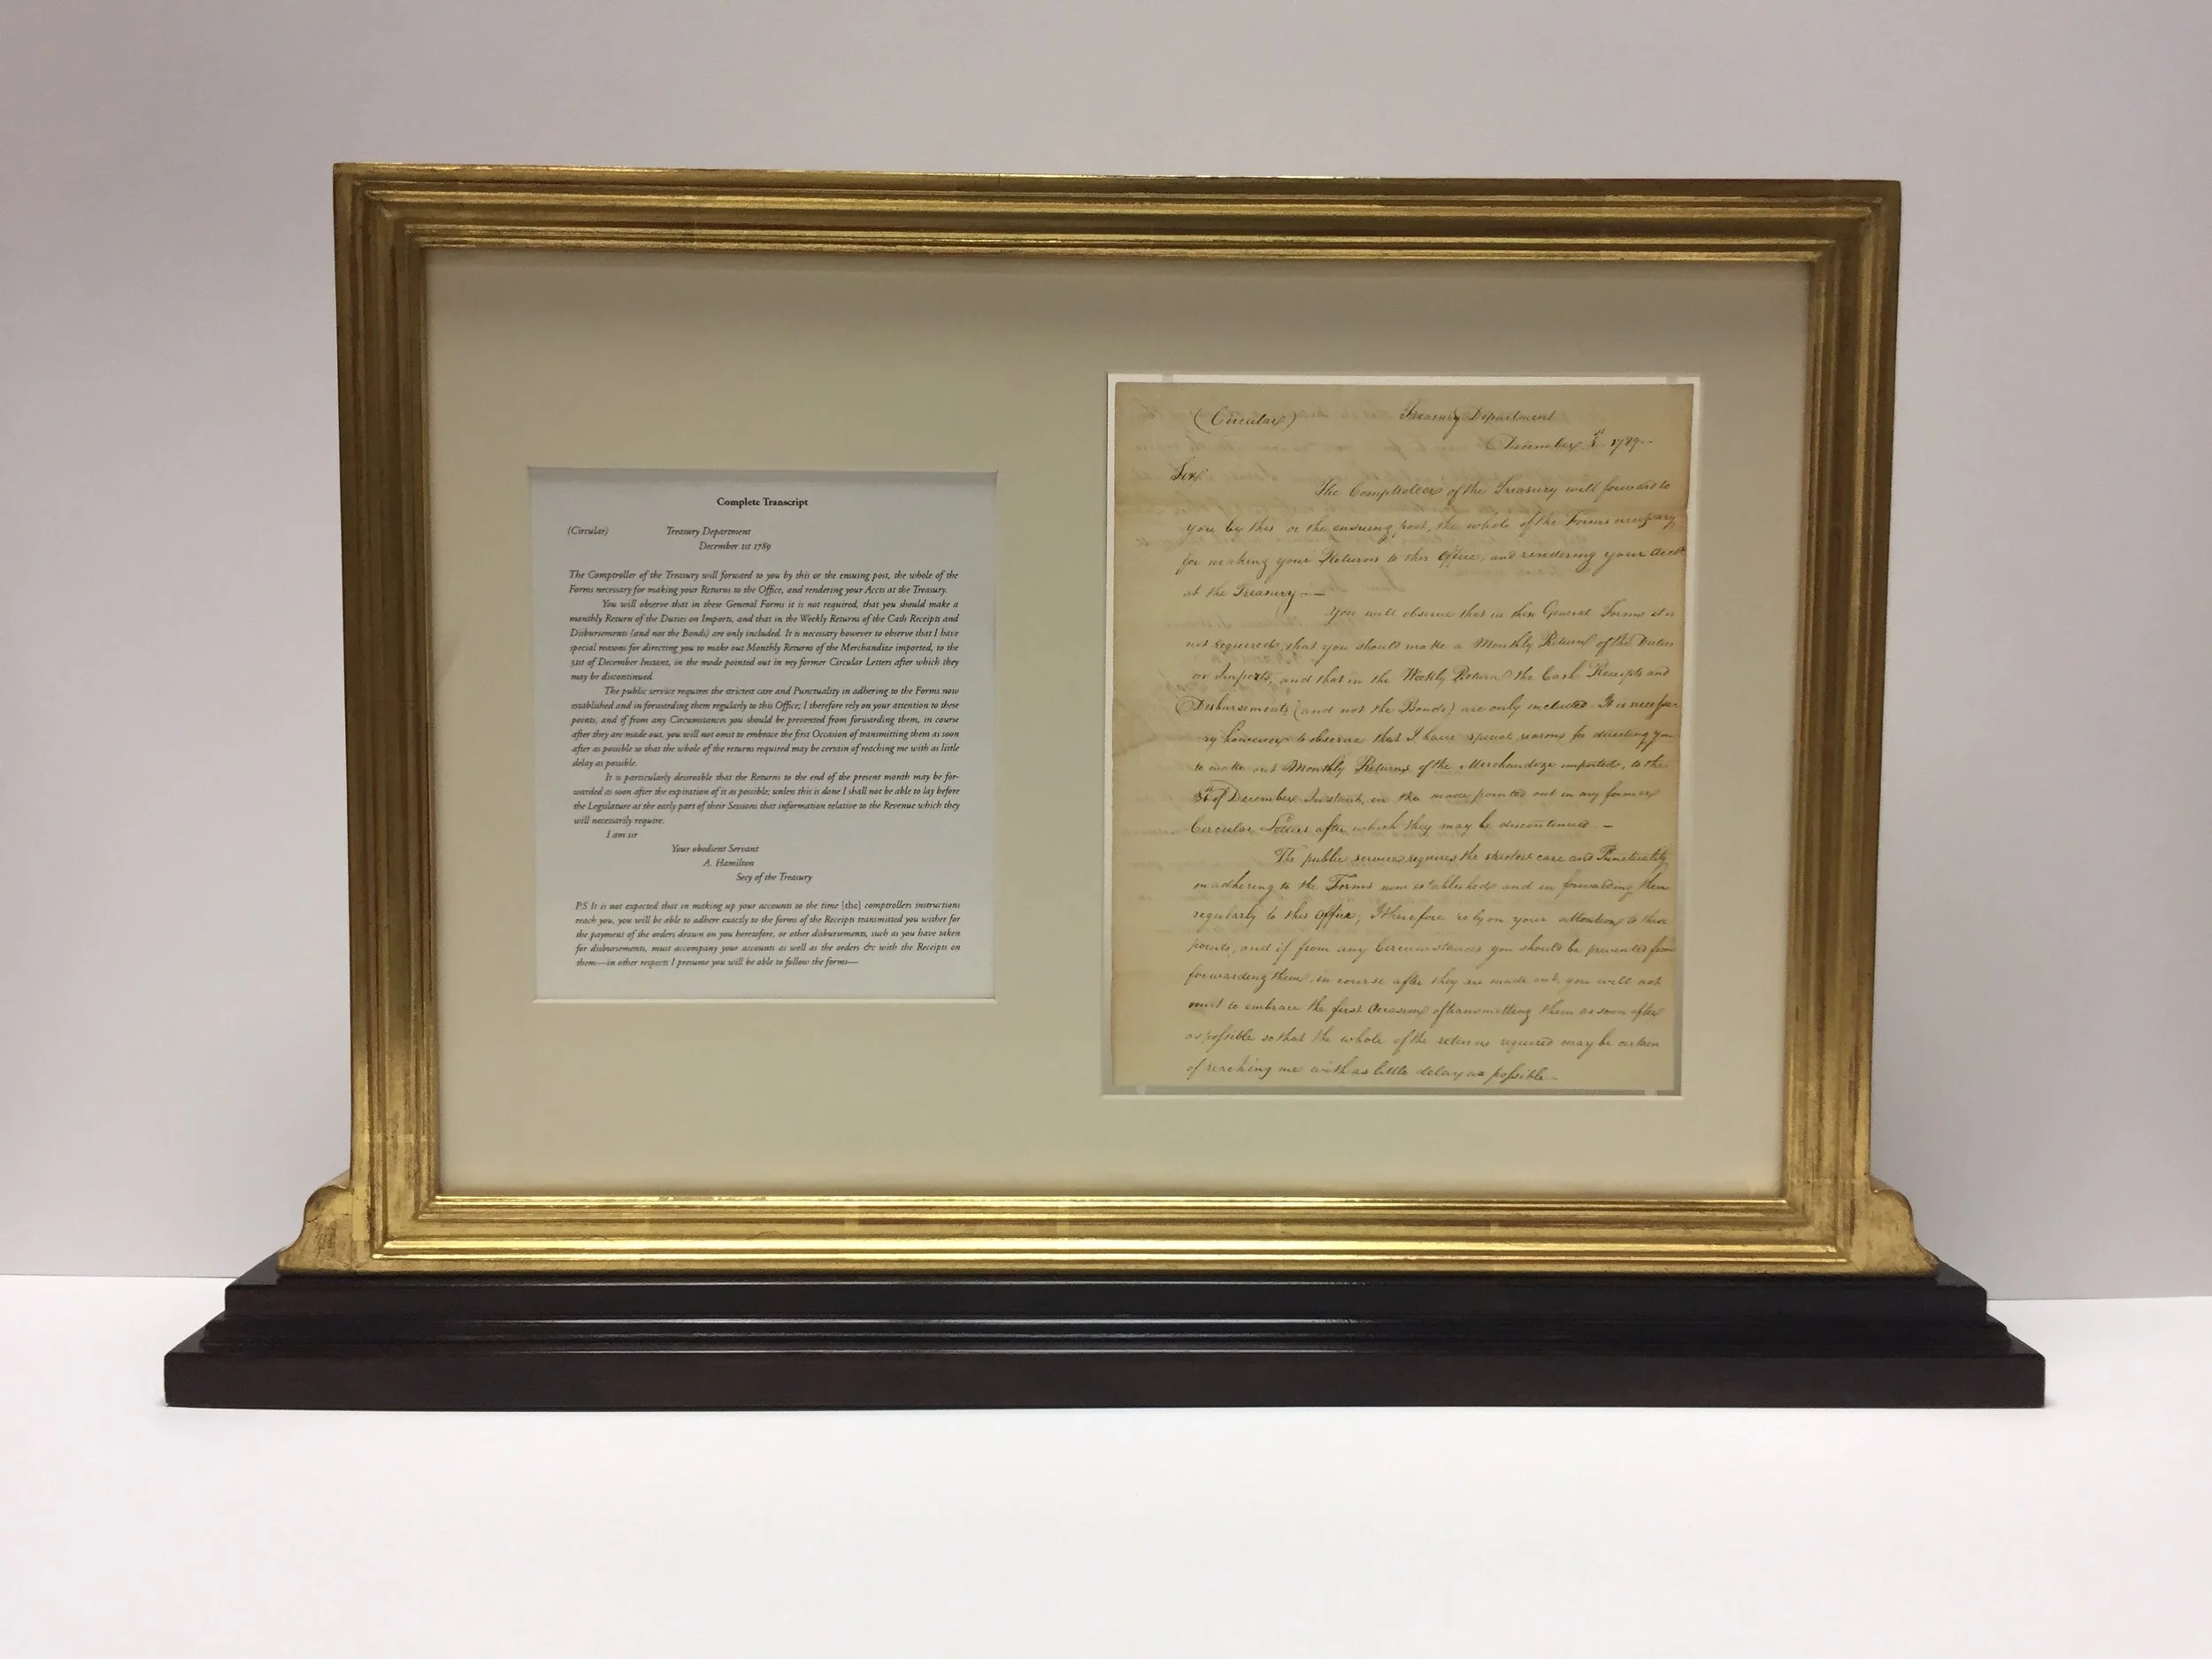 Complete Transcript
(Circular) Treasury Department
December 1st 1789
The Comptroller of the Treasury will forward to you by this or the ensuing post, the whole of the
Forms necessary for making your Returns to the Office, and rendering your Accts at the Treasury.
You will observe that in these General Forms it is not required, that you should make a
monthly Return of the Duties on Imports, and that in the Weekly Returns of the Cash Receipts and
Disbursements (and not the Bonds) are only included. It is necessary however to observe that I have
special reasons for directing you to make out Monthly Returns of the Merchandize imported, to the
31st of December Instant, in the mode pointed out in my former Circular Letters after which they
may be discontinued.
The public service requires the strictest care and Punctuality in adhering to the Forms now
established and in forwarding them regularly to this Office; I therefore rely on your attention to these
points, and if from any Circumstances you should be prevented from forwarding them, in course
after they are made out, you will not omit to embrace the first Occasion of transmitting them as soon
after as possible so that the whole of the returns required may be certain of reaching me with as little
delay as possible.
It is particularly desireable that the Returns to the end of the present month may be for-
warded as soon after the expiration of it as possible; unless this is done I shall not be able to lay before
the Legislature at the early part of their Sessions that information relative to the Revenue which they
will necessarily require.
I am sir
Your obedient Servant
A. Hamilton
Secy of the Treasury
PS It is not expected that in making up your accounts to the time [the] comptrollers instructions
reach you, you will be able to adhere exactly to the forms of the Receipts transmitted you wither for
the payment of the orders drawn on you heretofore, or other disbursements, such as you have taken
for disbursements, must accompany your accounts as well as the orders &c with the Receipts on
them—in other respects I presume you will be able to follow the forms—
(Circular) Treasury Department
December 1st 1789—
Sir
The Comptroller of the Treasury will forward to
you by this or the ensuing post, the whole of the Forms necessary
for making your Returns to this Office, and rendering your Accts
at the Treasury—
You will observe that in these General Forms it is
not required, that you should make a Monthly Return of the Duties
on Imports, and that in the Weekly Return the Cash Receipts and
Disbursements (and not the Bonds) are only included. It is necessa
ry however to observe that I have special reasons for directing you
to make out Monthly Returns of the Merchandize imported, to the
31st of December Instant, in the mode pointed out in my former
Circular Letters after which they may be discontinued —
The public service requires the strictest care and Punctuality
in adhering to the Forms now established and in forwarding them
regularly to this Office; I therefore rely on your attention to these
points, and if from any Circumstances you should be prevented from
forwarding them, in course after they are made out, you will not
omit to embrace the first Occasion of transmitting them as soon after
as possible so that the whole of the returns required may be certain
of reaching me with as little delay as possible—